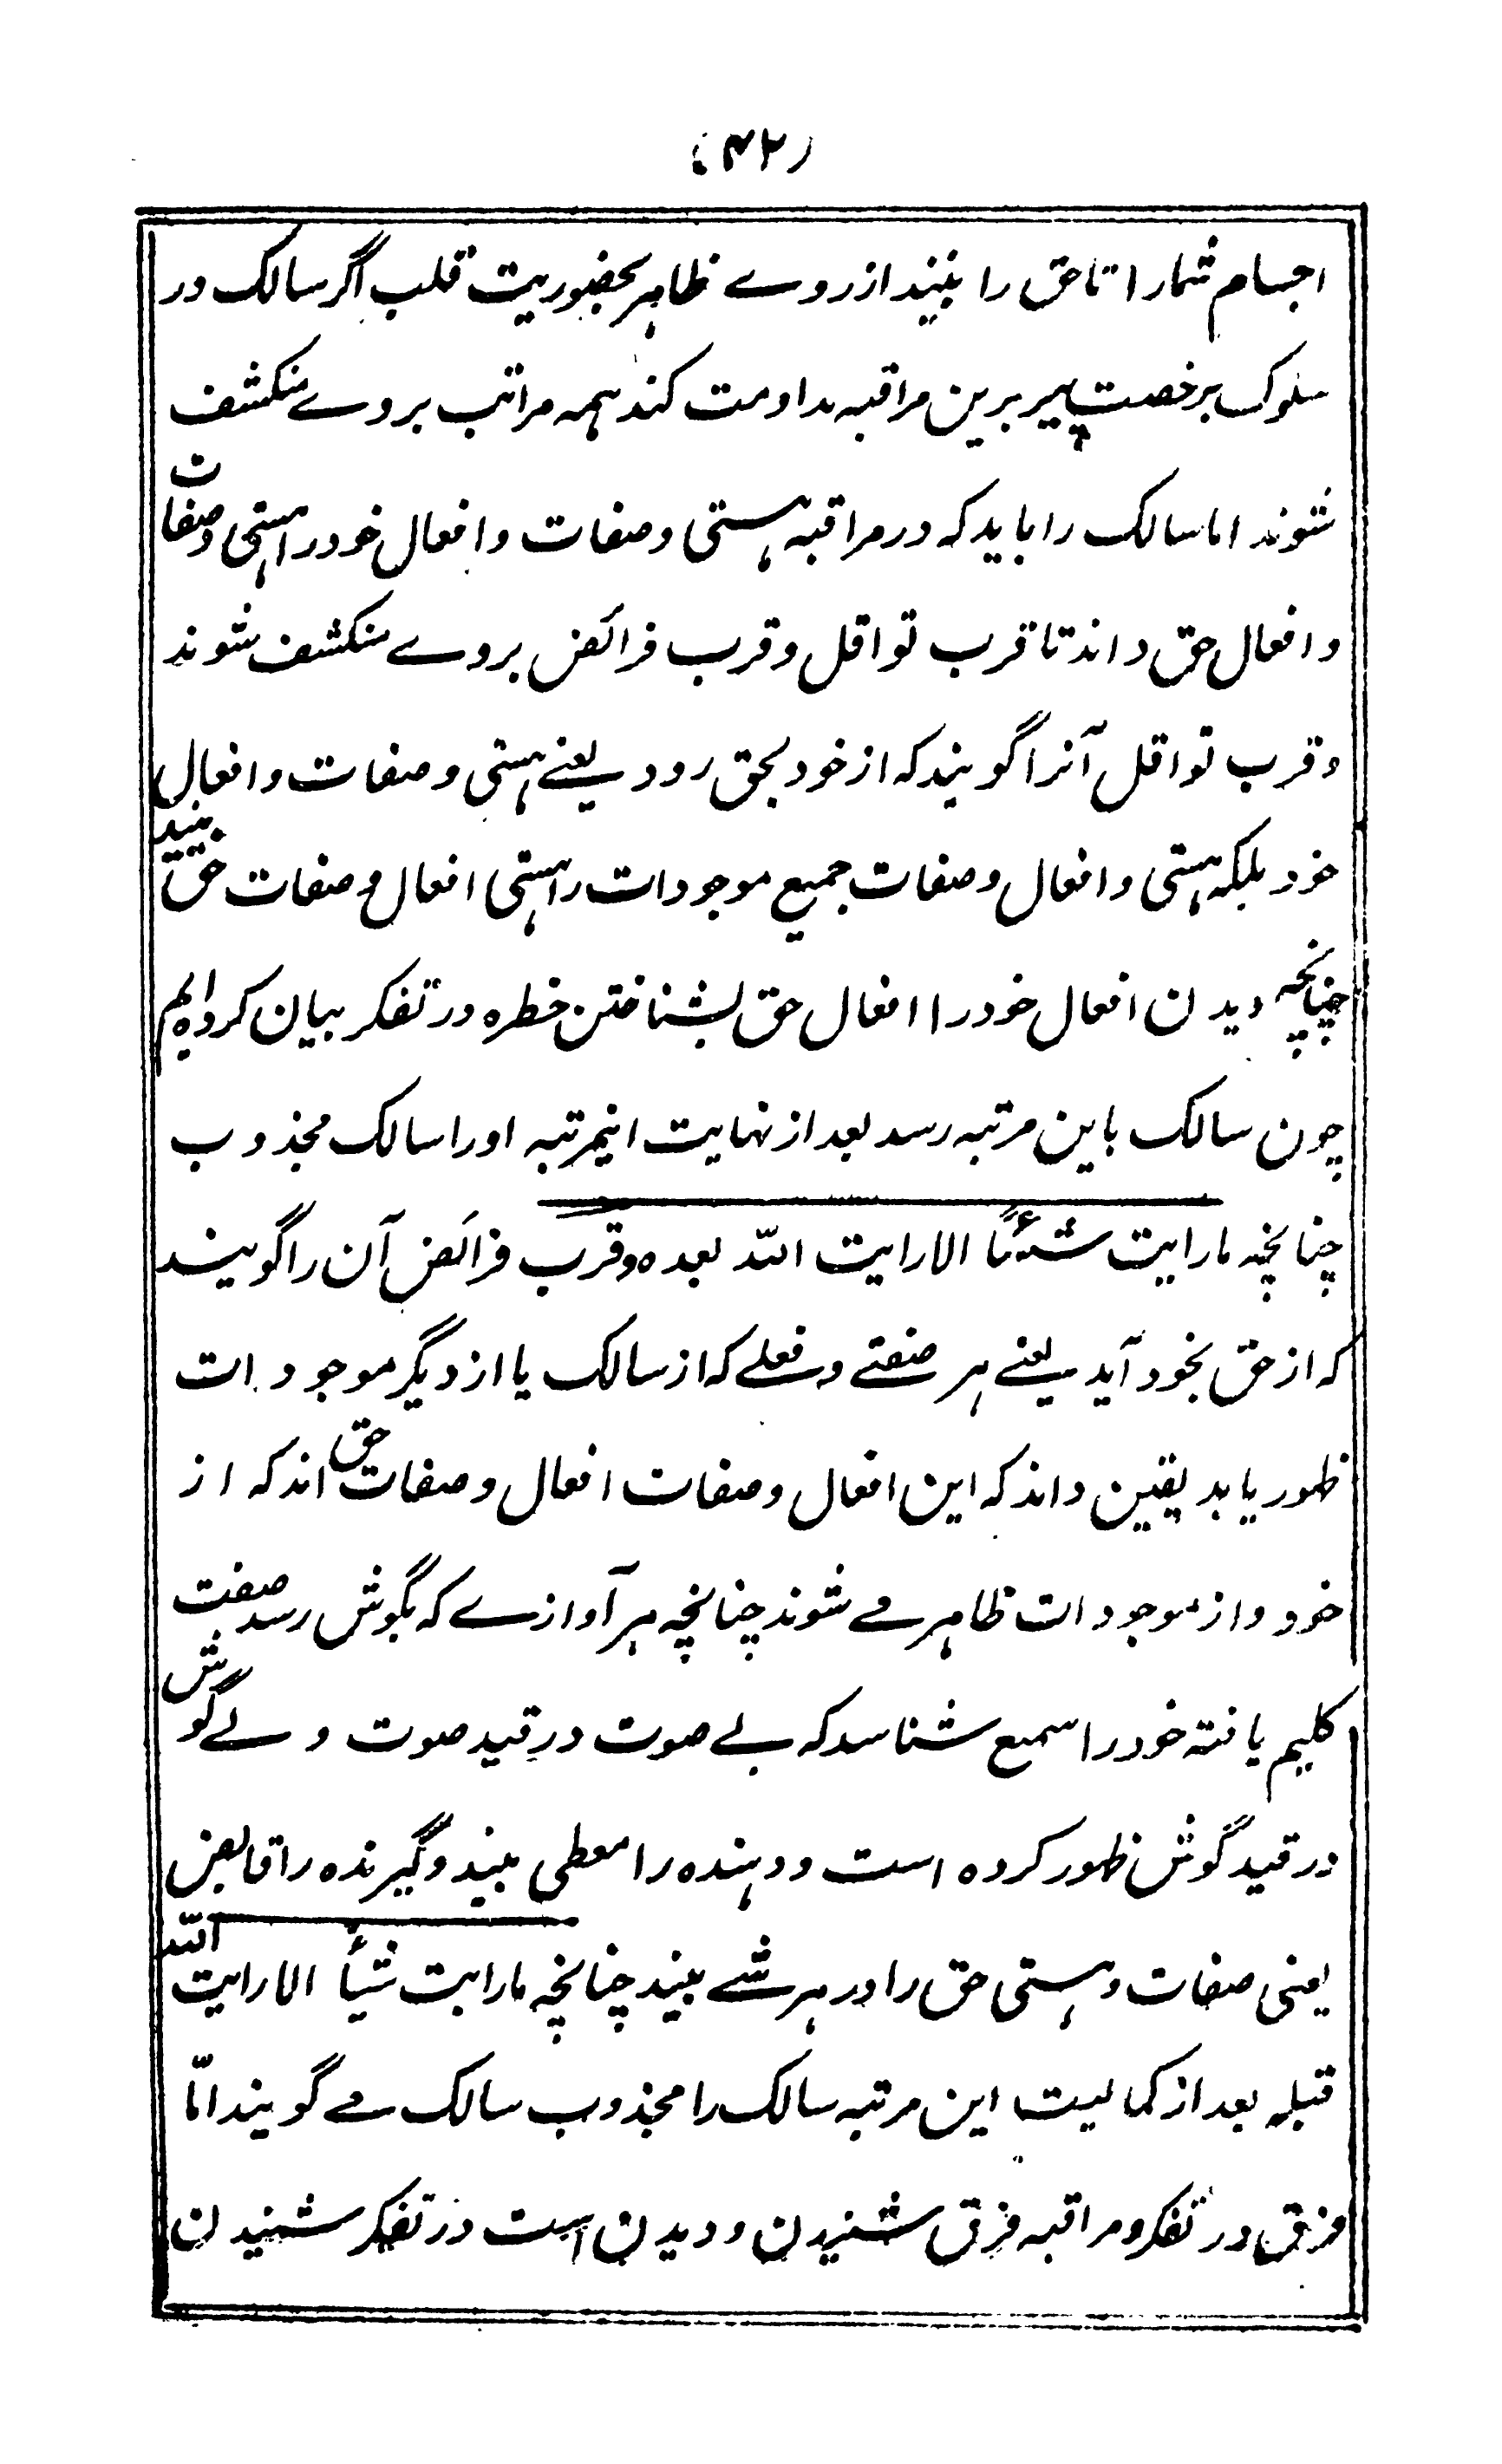 (۴۲)
اجسام شمارا تا حق را بینند از روے ظاہر بحضوریت قلب اگر سالک در
سلوک برخصت پیر برین مراقبہ مداومت کند ہمہ مراتب بروے منکشف
شوند اما سالک را باید کہ در مراقبہ ہستی وصفات وافعال خود را ہستی وصفات
وافعال حق داند تا قرب نوافل وقرب فرائض بروے منکشف شوند
وقرب نوافل آنرا گویند کہ از خود بحق رود یعنے ہستی وصفات وافعال
خود بلکہ ہستی وافعال وصفات جمیع موجودات را ہستی افعال وصفات حق بینید
چنانچہ دیدن افعال خود را افعال حق بشناختن خطرہ در تفکر بیان کردہ ایم
چون سالک باین مرتبہ رسد بعد از نہایت اینمرتبہ اورا سالک مجذوب
چنانچہ مارایت شیئاً الا رایت اللہ بعدہ وقرب فرائض آن را گویند
کہ از حق بخود آید یعنے ہر صفتے وفعلے کہ از سالک یا از دیگر موجودات
ظہور یابد یقین داند کہ این افعال وصفات افعال وصفات حق اند کہ از
خود واز موجودات ظاہر مے شوند چنانچہ ہر آوازے کہ بگوش رسد صفت
کلیم یافتہ خود را سمیع شناسد کہ بے صوت در قید صوت و بے گوش
در قید گوش ظہور کردہ است ودہندہ را معطی بیند وگیرندہ را قابض
یعنی صفات وہستی حق را در ہر شے بیند چنانچہ مارایت شیئاً الا رایت اللہ
قبلہ بعد از کمالیت این مرتبہ سالک را مجذوب سالک مے گویند امّا
فرق در تفکر ومراقبہ فرق شنیدن ودیدن است در تفکر شنیدن